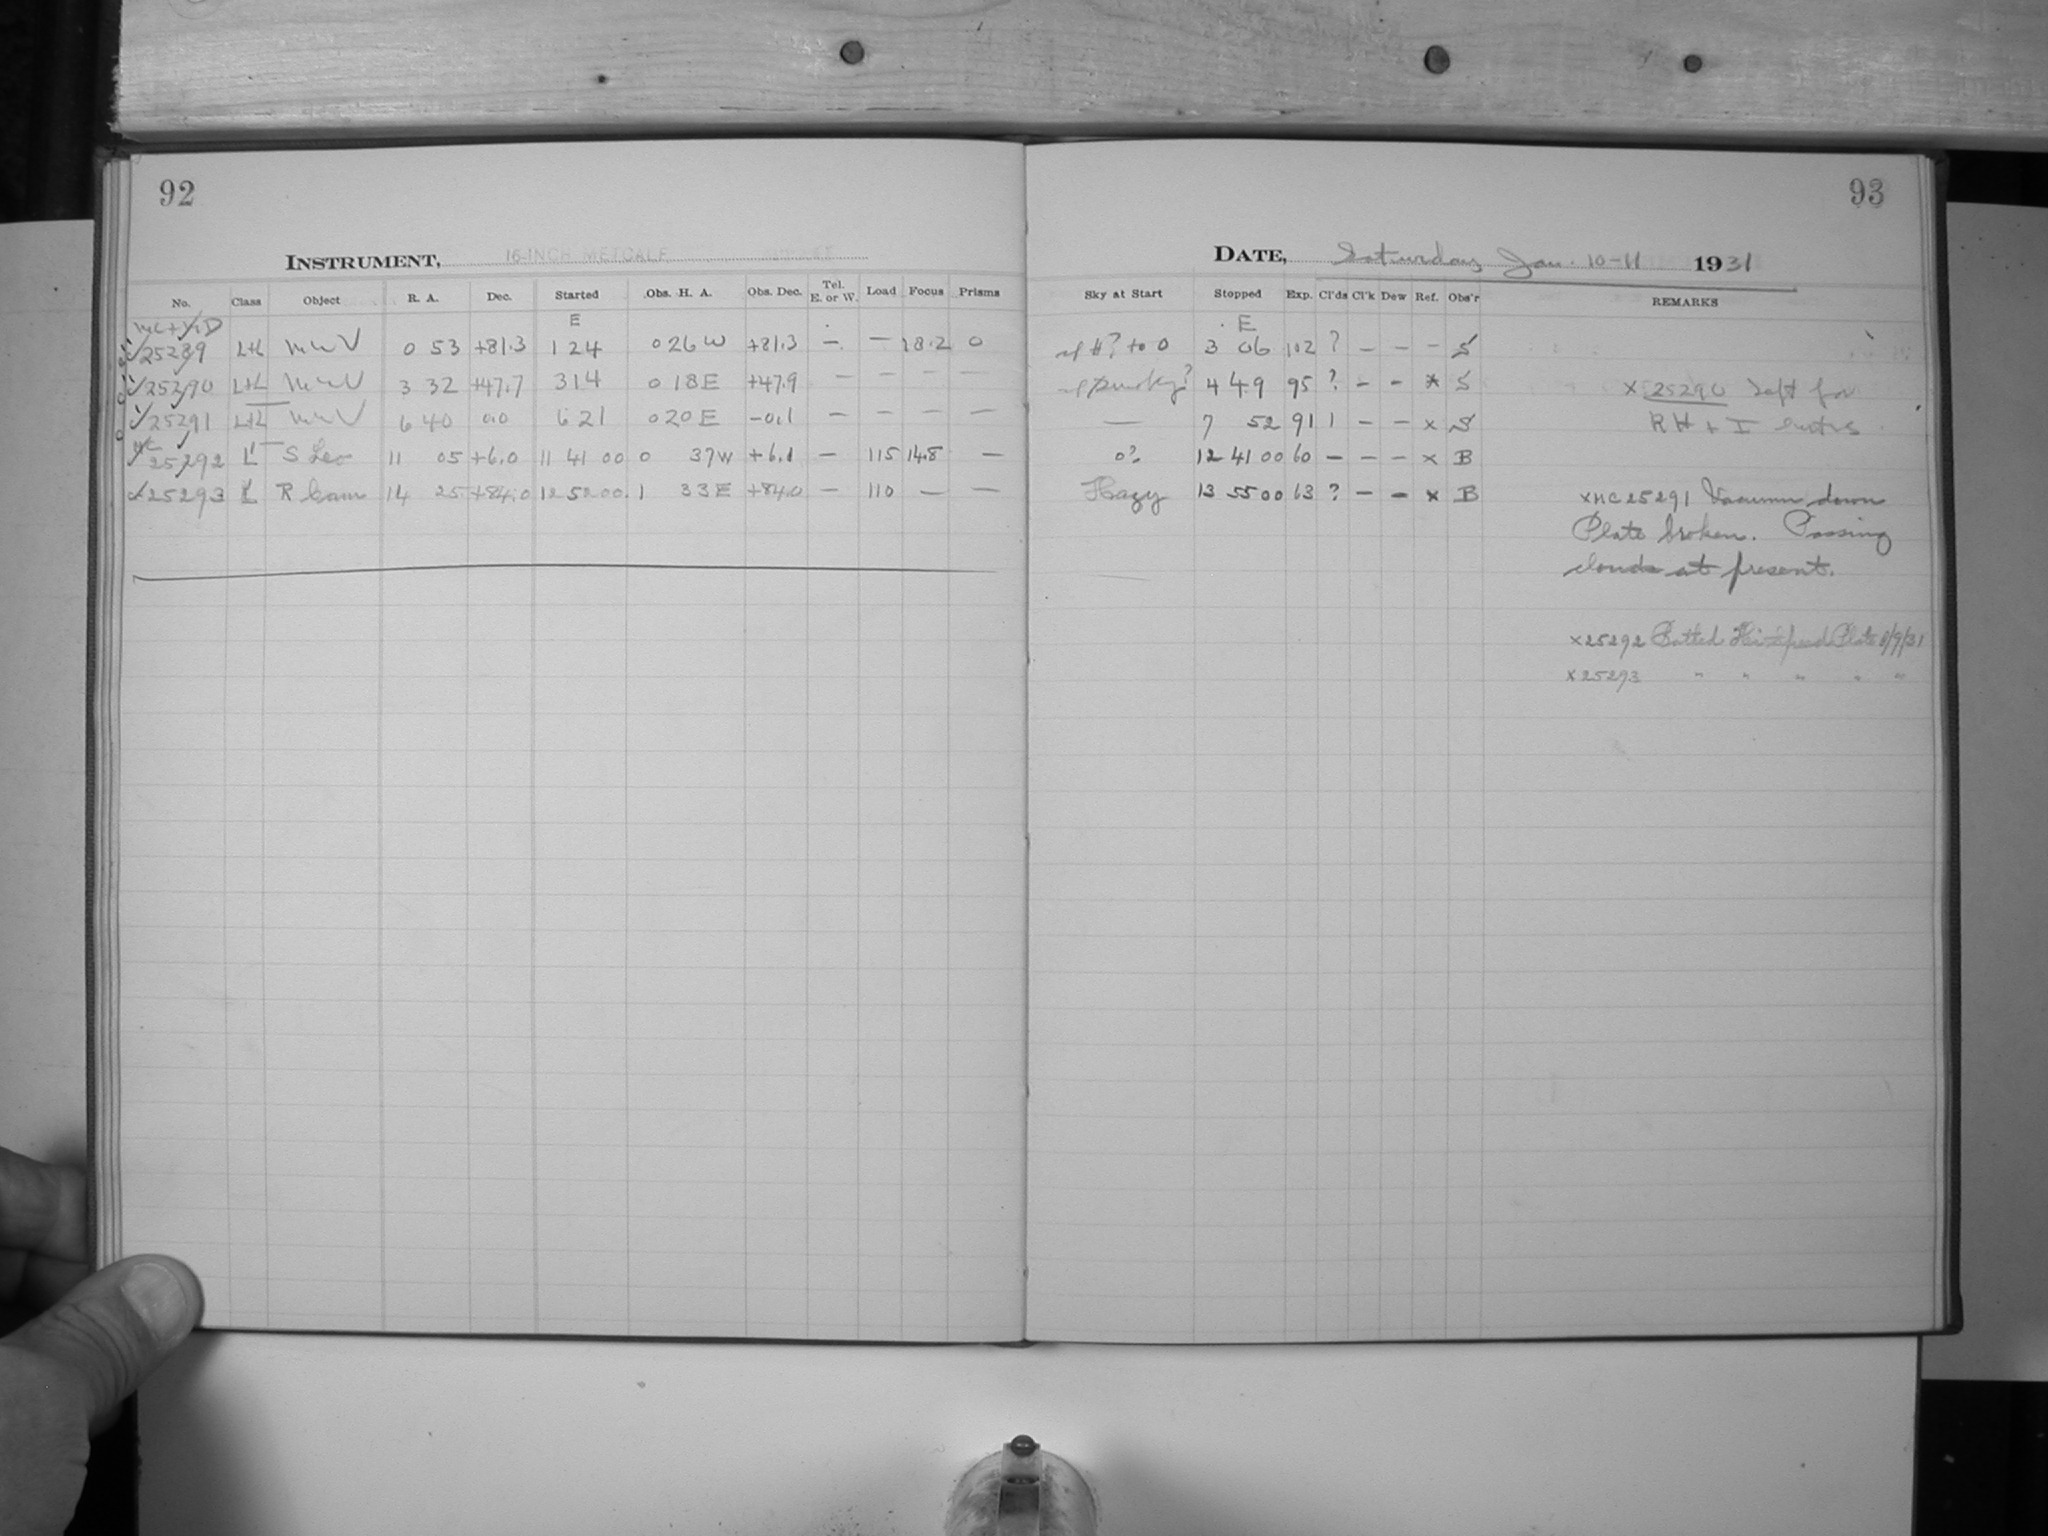 92
93
INSTRUMENT, 16-INCH METCALF
DATE, Saturday Jan. 10-11 1931
No. Class Object R. A. Dec. Started Obs. H. A. Obs. Dec. Tel. E. or W. Load Focus Prisms Sky at Start Stopped Exp. Cl'ds Cl'k Dew Ref. Obs'r REMARKS
E E
25289 L+L MWV 0 53 +81.3 1 24 0 26 W +81.3 — — 18.2 0 to 0 3 06 102 ? — — — S
25290 L+L MWV 3 32 +47.7 3 14 0 18 E +47.9 — — — — 4 49 95 ? — — x S x 25290 left for
25291 L+L MWV 6 40 0.0 6 21 0 20 E -0.1 — — — — — 7 52 91 1 — — x S RH + I
MC 25292 L S Leo 11 05 +6.0 11 41 00 0 37 W +6.1 — 115 14.8 — 0? 12 41 00 60 — — — x B
25293 L R Cam 14 25 +84.0 12 52 00 1 33 E +84.0 — 110 — — Hazy 13 55 00 63 ? — — x B x MC 25291 Vacuum down
Plate broken. Passing
clouds at present.
x 25292 Hi-Speed Plate 1/9/31
x 25293 " " " " "